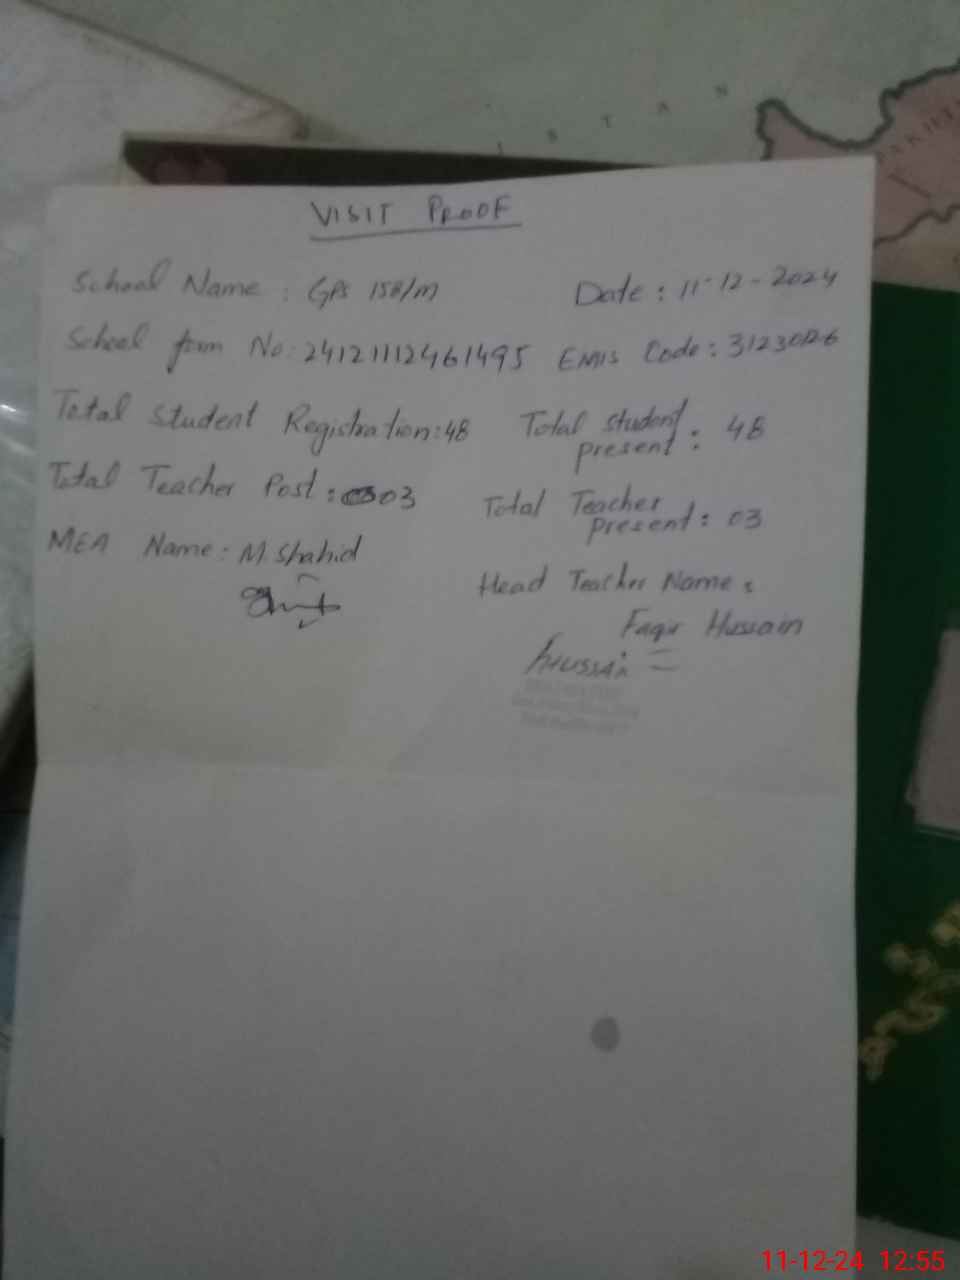 I S T A N
PAKIST
VISIT PROOF
School Name : GPS 158/M Date : 11-12-2024
School form No: 24121112461495 EMIS Code : 31230126
Total Student Registration: 48 Total student present : 48
Total Teacher Post : 03 Total Teacher present : 03
MEA Name : M. Shahid Head Teacher Name :
Faqir Hussain
HUSSAIN
11-12-24 12:55